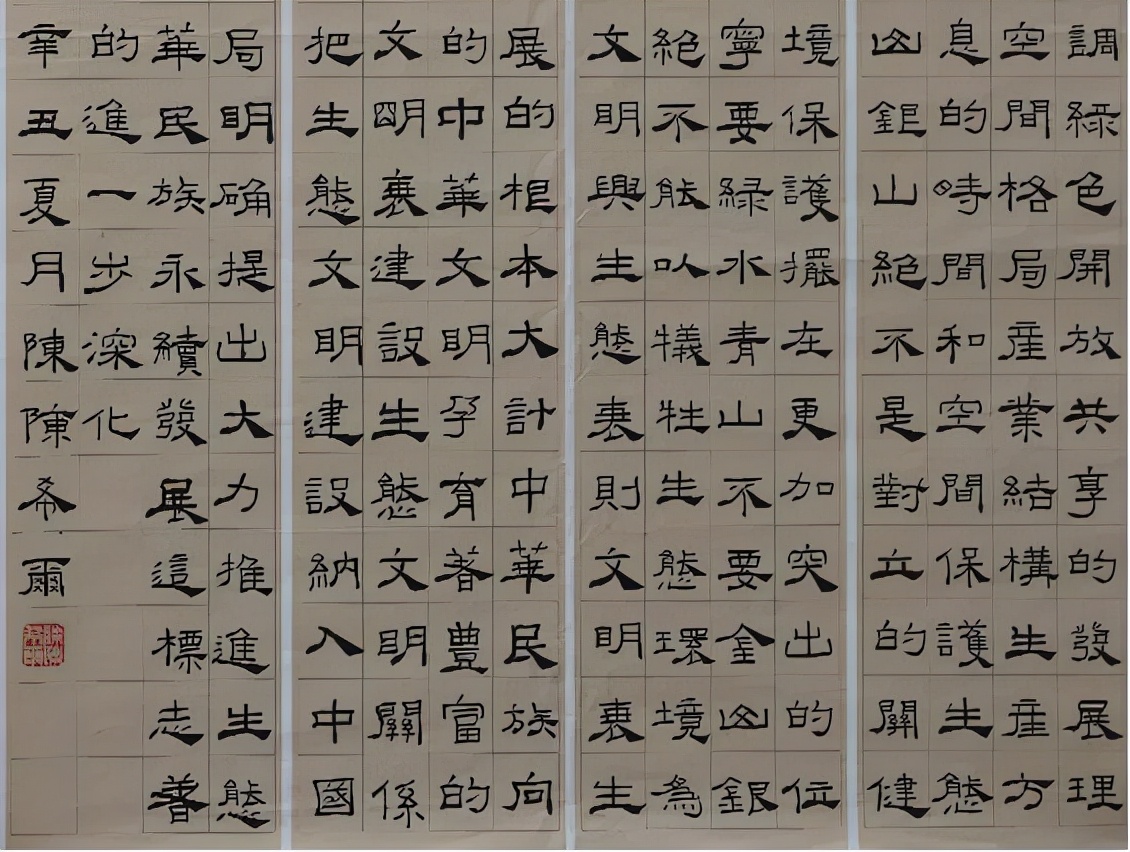 調綠色開放共享的發展理
空間格局產業結構生產方
息的時間和空間保護生態
山銀山絕不是對立的關健
境保護擺在更加突出的位
寧要綠水青山不要金山銀
絕不能以犧牲生態環境為
文明興生態衰則文明衰生
展的根本大計中華民族向
的中華文明孕育著豐富的
文明衰建設生態文明關係
把生態文明建設納入中國
局明确提出大力推進生態
華民族永續發展這標志著
的進一步深化
辛丑夏月陳陳希爾